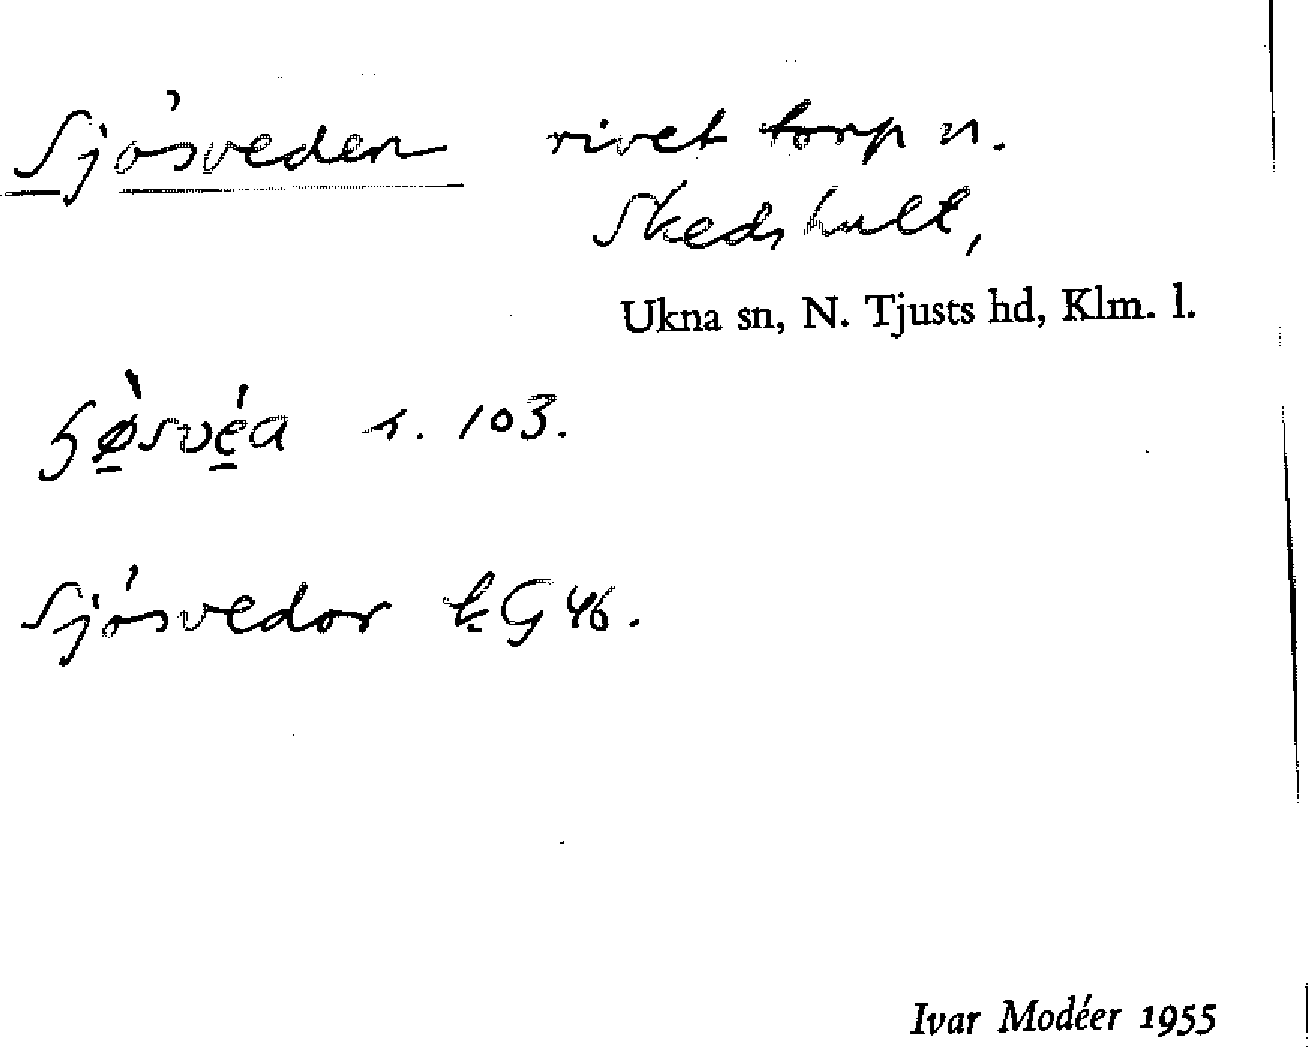 Sjösveden rivet torp n.
Skedshult,
Ukna sn, N. Tjusts hd, Klm. l.
s. 103.
Sjösvedor k G 46.
Ivar Modéer 1955